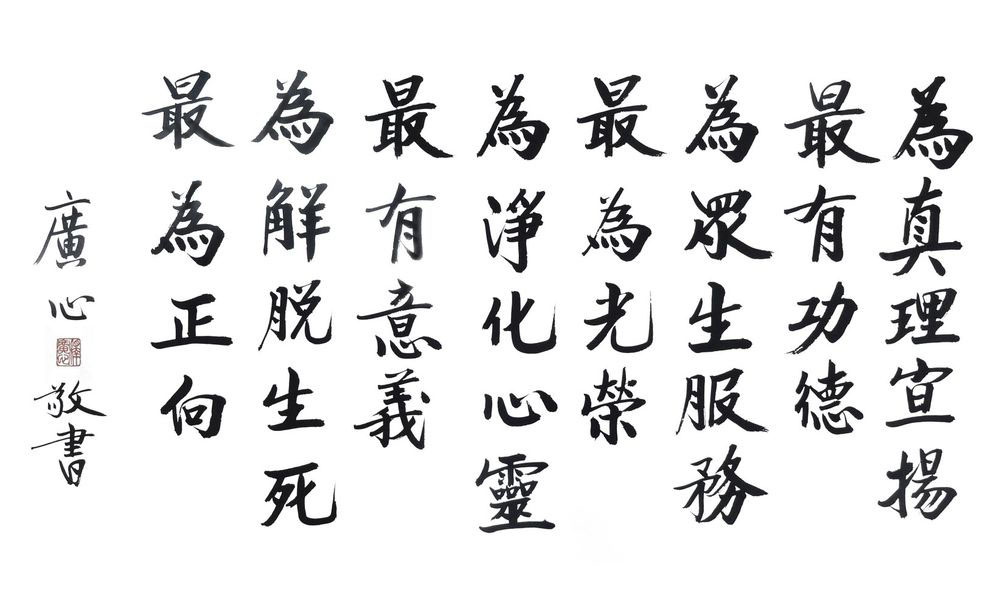 為真理宣揚
最有功德
為眾生服務
最為光榮
為淨化心靈
最有意義
為解脫生死
最為正向
廣心
敬書